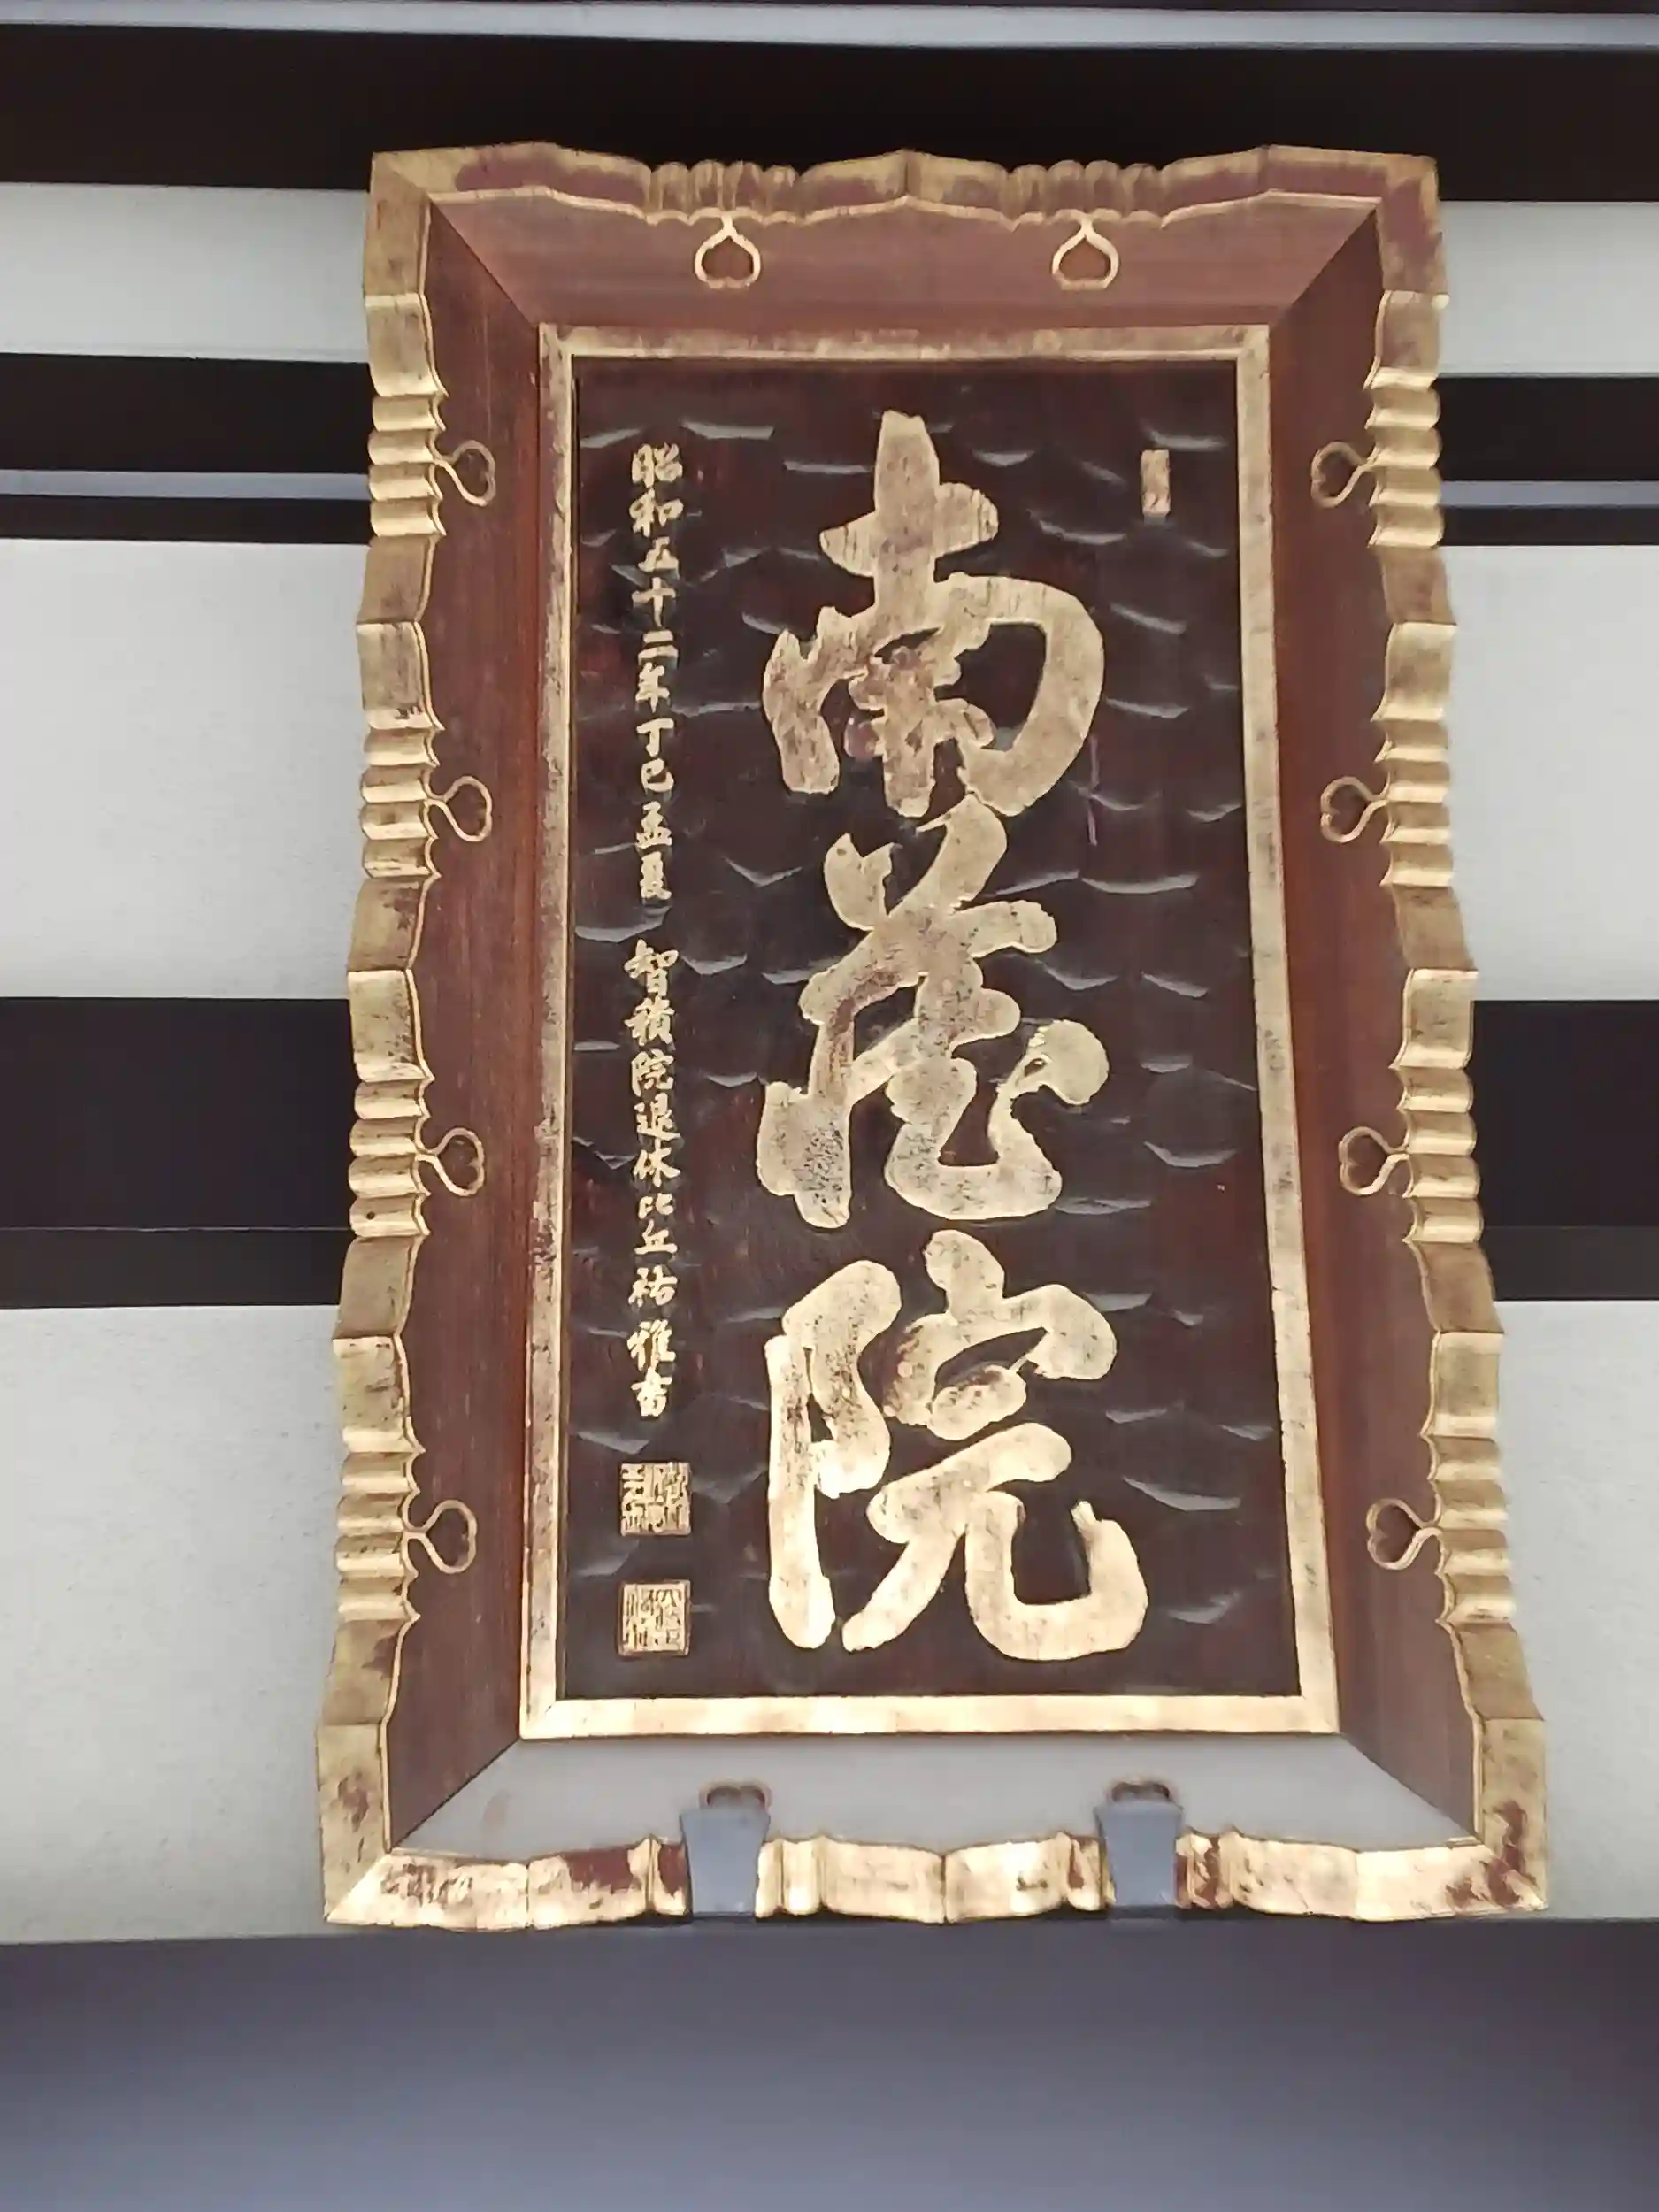 南蔵院
昭和五十二年丁巳孟夏 智積院退休比丘祐雅書